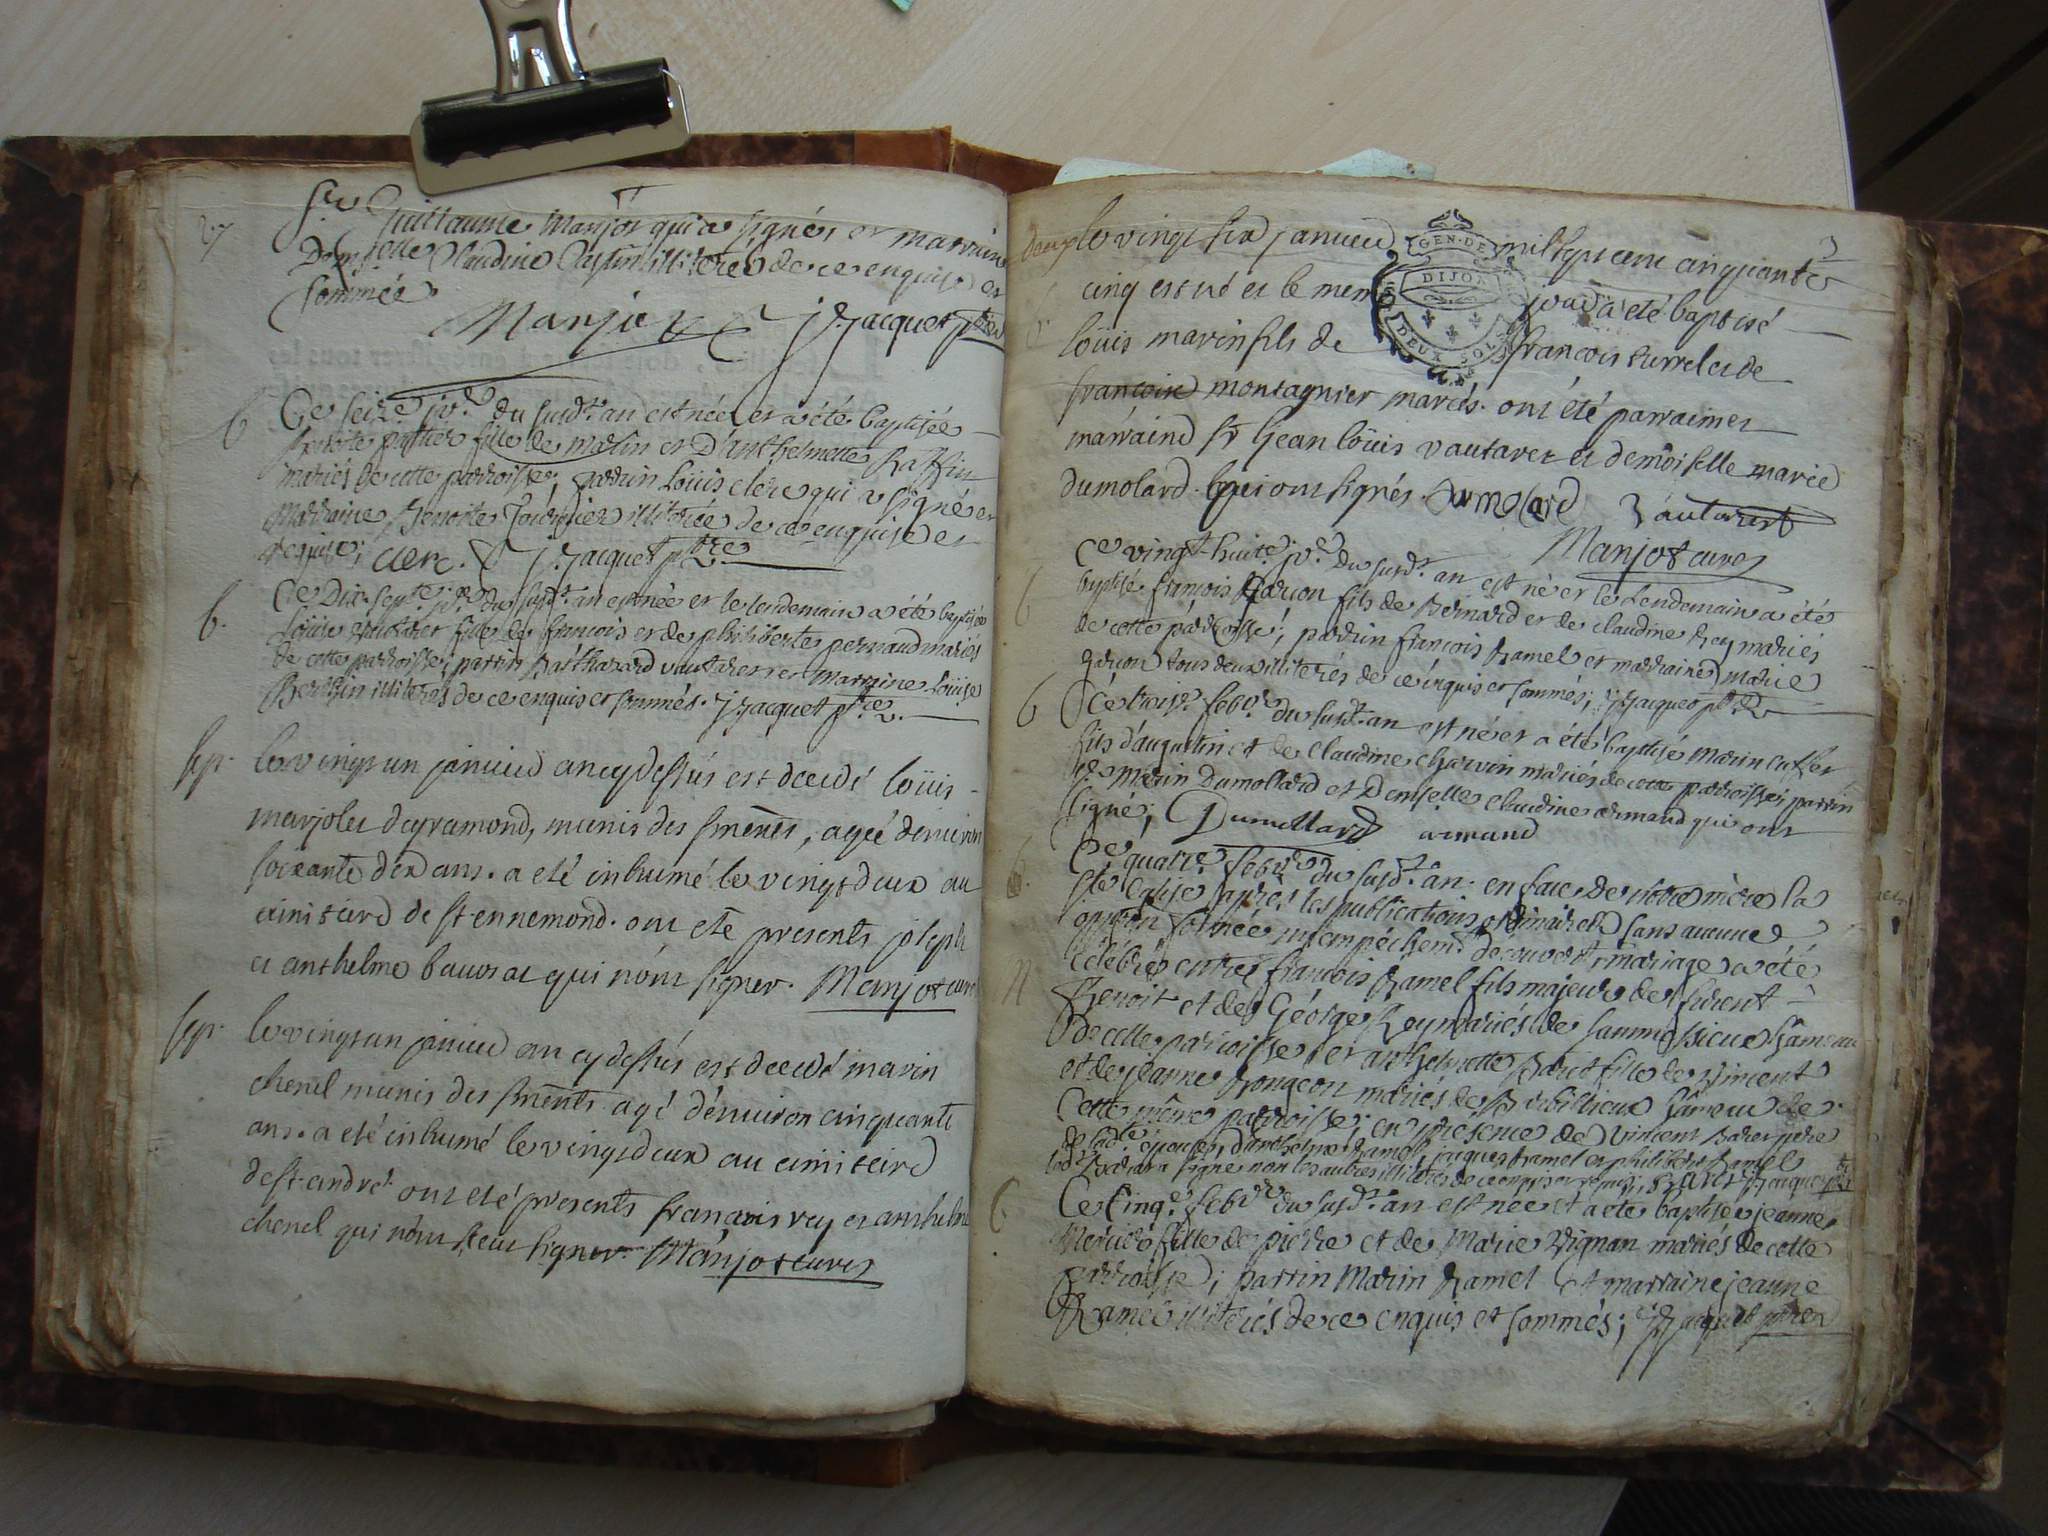 Sr Guillaume Manjot qui a signés et marraine
Demoiselle Claudine illiterée de ce enquise et
sommée
Manjot J. Jacquet ptre
b Ce seize jer du susdt an est née et a été baptisée
benoite fille de marin et D'anthelmette Raffin
mariés de cette parroisse; parrin Loüis clerc qui a signé et
Marraine Benoite illiterée de ce enquise et
requise; clerc. J. Jacquet ptre
b. Ce Dix-sept du susdt an est née et le lendemain a été baptisée
Loüise vautaret fille de françois et de philiberte pernaud mariés
de cette parroisse; parrin Balthazard vautaret et marraine Loüise
Berthin illiterés de ce enquis et sommés. J. Jacquet ptre
sep. le vingt un janvier an cy dessus est decedé loüis
marjolet munis des srements, agéé denviron
soixante dix ans. a eté inhumé le vingt deux au
cimitiere de st. ennemond. ont eté presents joseph
et anthelme qui n'ont signer. Manjot curé
sep. le vingt un janvier an cy dessus est decedé marin
chenel munis des srements agé d'environ cinquante
ans. a eté inhumé le vingt deux au cimitiere
de st. andré. ont eté presents francois rey et anthelme
chenel qui n'ont sceu signer. Manjot curé
3
GEN. DE DIJON
DEUX SOLS
le vingt six janvier mil sept cent cinquante
cinq est né et le meme jour a eté baptisé
loüis marin fils de francois surrel et de
francoise montagnier mariés. ont été parrain et
marraine sr jean loüis vautaret et demoiselle marie
dumolard. qui ont signés. Dumolard Vautaret
Manjot curé
b Ce vingt-huit du susdt an est né et le Lendemain a été
baptisé françois fils de Bernard et de claudine Rey mariés
de cette parroisse; parrin françois Ramel et marraine marie
tous deux illiterés de ce enquis et sommés; J. Jacquet ptre
b Ce trois febvr du susdt an est né et a été baptisé Marin cuffet
fils d'augustin et de claudine charvin mariés de cette parroisse; parrin
sr marin Dumollard et Demselle claudine armand qui ont
signé; Dumollard armand
Ce quatre febvr du susdt an. en face de notre mère la
ste Eglise après les publications ordinaires sans aucune
opposition formée ni empéchemt découvert, mariage a été
célébré entre françois Ramel fils majeur de furent
Benoit et de George Rey mariés de hameau
de cette parroisse, et anthelmette fille de Vincent
et de jeanne mariés de hameau de
cette même parroisse; en présence de Vincent père
de ladte épouse, Ramel, jacques Ramel et philibert Ramel
b. Ce cinq febvr du susdt an est née et a été baptisée jeanne
fille de pierre et de Marie Vignan mariés de cette
parroisse; parrin Marin Ramel et marraine jeanne
Ramel illiterés de ce enquis et sommés; J. Jacquet ptre